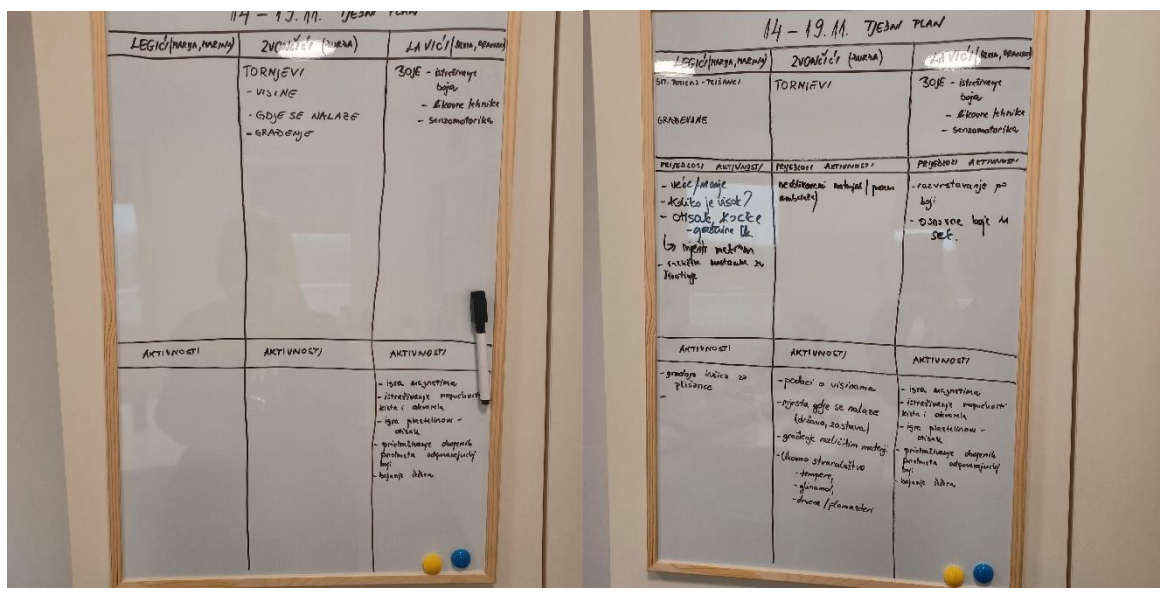 14 - 19.11. TJEDNI PLAN
LEGIĆI (MARIJA, MARINA)
ZVONČIĆI (ĐURĐA)
LAVIĆI
TORNJEVI
- VISINE
- GDJE SE NALAZE
- GRAĐENJE
BOJE - istraživanje
boja
- likovne tehnike
- senzomotorika
AKTIVNOSTI
AKTIVNOSTI
AKTIVNOSTI
- igra magnetima
- istraživanje mogućnosti
kista i akvarela
- igra plastelinom -
otisak
- pridruživanje obojenih
predmeta odgovarajućoj
boji
- bojanje
14 - 19.11. TJEDNI PLAN
LEGIĆI (MARIJA, MARINA)
ZVONČIĆI (ĐURĐA)
LAVIĆI
GRAĐEVINE
TORNJEVI
BOJE - istraživanje
boja
- likovne tehnike
- senzomotorika
PRIJEDLOZI AKTIVNOSTI
PRIJEDLOZI AKTIVNOSTI
PRIJEDLOZI AKTIVNOSTI
- veće/manje
- Koliko je visok?
- otisak kocke
- građevine
mjeriti metrom
neoblikovani materijal
- razvrstavanje po
boji
- osnovne boje u
sek.
AKTIVNOSTI
AKTIVNOSTI
AKTIVNOSTI
- gradnja kućica za
plišance
-
- podaci o visinama
- mjesta gdje se nalaze
(država, zastava)
- građenje različitim materij
- likovno stvaralaštvo
- tempere,
- glinamol,
- drvene / flomasteri
- igra magnetima
- istraživanje mogućnosti
kista i akvarela
- igra plastelinom -
otisak
- pridruživanje obojenih
predmeta odgovarajućoj
boji
- bojanje